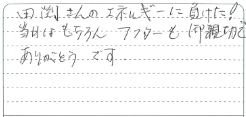 田渕さんのエネルギーに負けた!
当日はもちろん フォローも 御親切で
ありがとう です